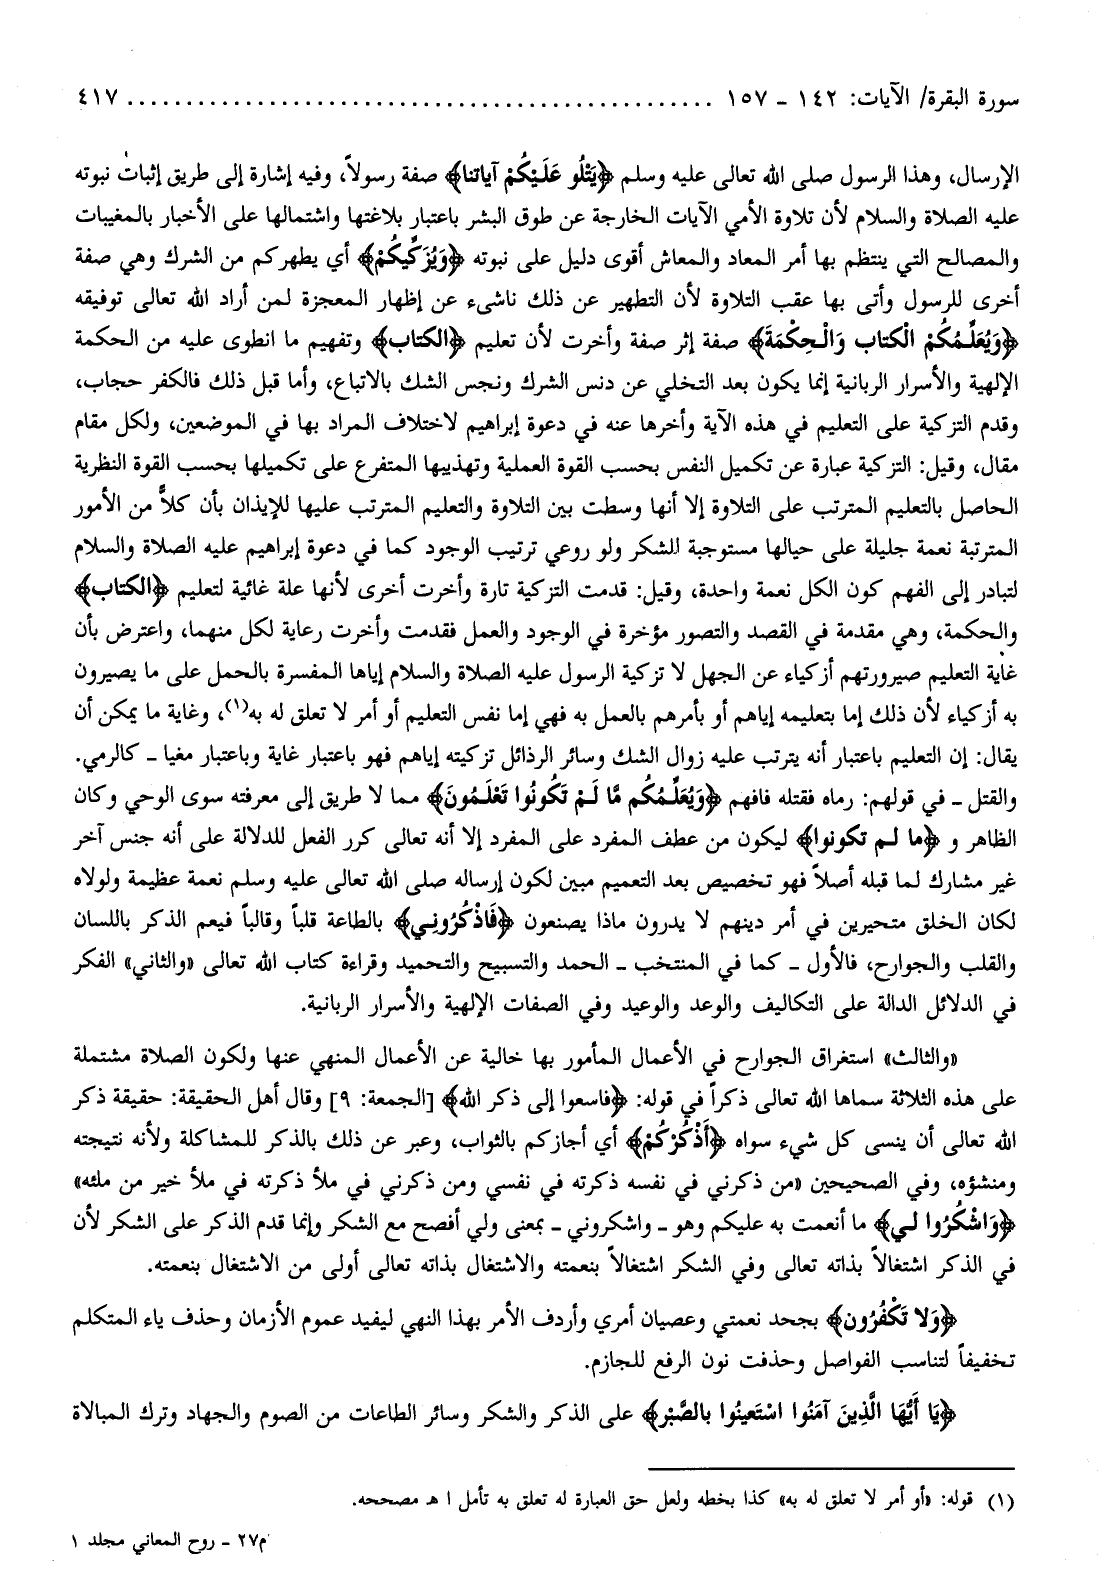 سورة البقرة/ الآيات: ١٤٢ ـ ١٥٧ ................................................. ٤١٧
الإرسال، وهذا الرسول صلى الله تعالى عليه وسلم ﴿يَتْلُو عَلَيْكُمْ آياتنا﴾ صفة رسولاً، وفيه إشارة إلى طريق إثبات نبوته
عليه الصلاة والسلام لأن تلاوة الأمي الآيات الخارجة عن طوق البشر باعتبار بلاغتها واشتمالها على الأخبار بالمغيبات
والمصالح التي ينتظم بها أمر المعاد والمعاش أقوى دليل على نبوته ﴿وَيُزَكِّيكُمْ﴾ أي يطهركم من الشرك وهي صفة
أخرى للرسول وأتى بها عقب التلاوة لأن التطهير عن ذلك ناشىء عن إظهار المعجزة لمن أراد الله تعالى توفيقه
﴿وَيُعَلِّمُكُمْ الْكتاب وَالْحِكْمَةَ﴾ صفة إثر صفة وأخرت لأن تعليم ﴿الكتاب﴾ وتفهيم ما انطوى عليه من الحكمة
الإلهية والأسرار الربانية إنما يكون بعد التخلي عن دنس الشرك ونجس الشك بالاتباع، وأما قبل ذلك فالكفر حجاب،
وقدم التزكية على التعليم في هذه الآية وأخرها عنه في دعوة إبراهيم لاختلاف المراد بها في الموضعين، ولكل مقام
مقال، وقيل: التزكية عبارة عن تكميل النفس بحسب القوة العملية وتهذيبها المتفرع على تكميلها بحسب القوة النظرية
الحاصل بالتعليم المترتب على التلاوة إلا أنها وسطت بين التلاوة والتعليم المترتب عليها للإيذان بأن كلاًّ من الأمور
المترتبة نعمة جليلة على حيالها مستوجبة للشكر ولو روعي ترتيب الوجود كما في دعوة إبراهيم عليه الصلاة والسلام
لتبادر إلى الفهم كون الكل نعمة واحدة، وقيل: قدمت التزكية تارة وأخرت أخرى لأنها علة غائية لتعليم ﴿الكتاب﴾
والحكمة، وهي مقدمة في القصد والتصور مؤخرة في الوجود والعمل فقدمت وأخرت رعاية لكل منهما، واعترض بأن
غاية التعليم صيرورتهم أزكياء عن الجهل لا تزكية الرسول عليه الصلاة والسلام إياها المفسرة بالحمل على ما يصيرون
به أزكياء لأن ذلك إما بتعليمه إياهم أو بأمرهم بالعمل به فهي إما نفس التعليم أو أمر لا تعلق له به(١)، وغاية ما يمكن أن
يقال: إن التعليم باعتبار أنه يترتب عليه زوال الشك وسائر الرذائل تزكيته إياهم فهو باعتبار غاية وباعتبار مغيا ـ كالرمي.
والقتل ـ في قولهم: رماه فقتله فافهم ﴿وَيُعَلِّمُكُم مَّا لَمْ تَكُونُوا تَعْلَمُونَ﴾ مما لا طريق إلى معرفته سوى الوحي وكان
الظاهر و ﴿ما لم تكونوا﴾ ليكون من عطف المفرد على المفرد إلا أنه تعالى كرر الفعل للدلالة على أنه جنس آخر
غير مشارك لما قبله أصلاً فهو تخصيص بعد التعميم مبين لكون إرساله صلى الله تعالى عليه وسلم نعمة عظيمة ولولاه
لكان الخلق متحيرين في أمر دينهم لا يدرون ماذا يصنعون ﴿فَاذْكُرُونِي﴾ بالطاعة قلباً وقالباً فيعم الذكر باللسان
والقلب والجوارح، فالأول ـ كما في المنتخب ـ الحمد والتسبيح والتحميد وقراءة كتاب الله تعالى «والثاني» الفكر
في الدلائل الدالة على التكاليف والوعد والوعيد وفي الصفات الإلهية والأسرار الربانية.
«والثالث» استغراق الجوارح في الأعمال المأمور بها خالية عن الأعمال المنهي عنها ولكون الصلاة مشتملة
على هذه الثلاثة سماها الله تعالى ذكراً في قوله: ﴿فاسعوا إلى ذكر الله﴾ [الجمعة: ٩] وقال أهل الحقيقة: حقيقة ذكر
الله تعالى أن ينسى كل شيء سواه ﴿أَذْكُرْكُمْ﴾ أي أجازكم بالثواب، وعبر عن ذلك بالذكر للمشاكلة ولأنه نتيجته
ومنشؤه، وفي الصحيحين «من ذكرني في نفسه ذكرته في نفسي ومن ذكرني في ملأ ذكرته في ملأ خير من ملئه»
﴿وَاشْكُرُوا لي﴾ ما أنعمت به عليكم وهو ـ واشكروني ـ بمعنى ولي أفصح مع الشكر وإنما قدم الذكر على الشكر لأن
في الذكر اشتغالاً بذاته تعالى وفي الشكر اشتغالاً بنعمته والاشتغال بذاته تعالى أولى من الاشتغال بنعمته.
﴿وَلا تَكْفُرُون﴾ بجحد نعمتي وعصيان أمري وأردف الأمر بهذا النهي ليفيد عموم الأزمان وحذف ياء المتكلم
تخفيفاً لتناسب الفواصل وحذفت نون الرفع للجازم.
﴿يَا أَيُّهَا الَّذِينَ آمَنُوا اسْتَعِينُوا بالصَّبْر﴾ على الذكر والشكر وسائر الطاعات من الصوم والجهاد وترك المبالاة
(١) قوله: «أو أمر لا تعلق له به» كذا بخطه ولعل حق العبارة له تعلق به تأمل ا هـ مصححه.
م٢٧ ـ روح المعاني مجلد ١